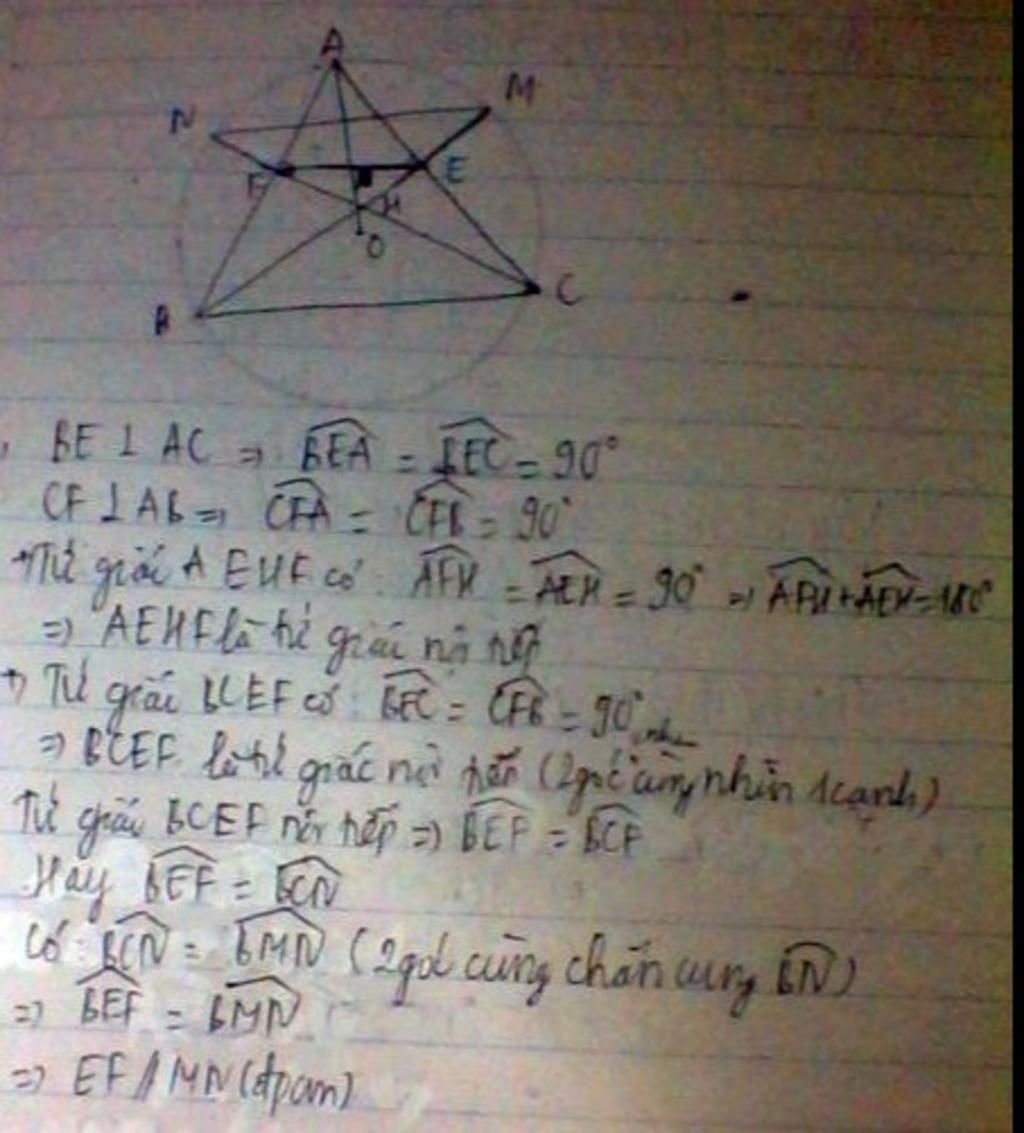 A
N
M
F
E
H
O
B
C
BE ⊥ AC => \widehat{BEA} = \widehat{BEC} = 90°
CF ⊥ AB => \widehat{CFA} = \widehat{CFB} = 90°
+ Tứ giác AEHF có: \widehat{AFH} = \widehat{AEH} = 90° => \widehat{AFH} + \widehat{AEH} = 180°
=> AEHF là tứ giác nội tiếp
+ Tứ giác BCEF có: \widehat{BEC} = \widehat{CFB} = 90°
=> BCEF là tứ giác nội tiếp (2 góc cùng nhìn 1 cạnh)
Tứ giác BCEF nội tiếp => \widehat{BEF} = \widehat{BCF}
Hay \widehat{BEF} = \widehat{BCN}
Có: \widehat{BCN} = \widehat{BMN} (2 góc cùng chắn cung \widehat{BN})
=> \widehat{BEF} = \widehat{BMN}
=> EF // MN (đpcm)